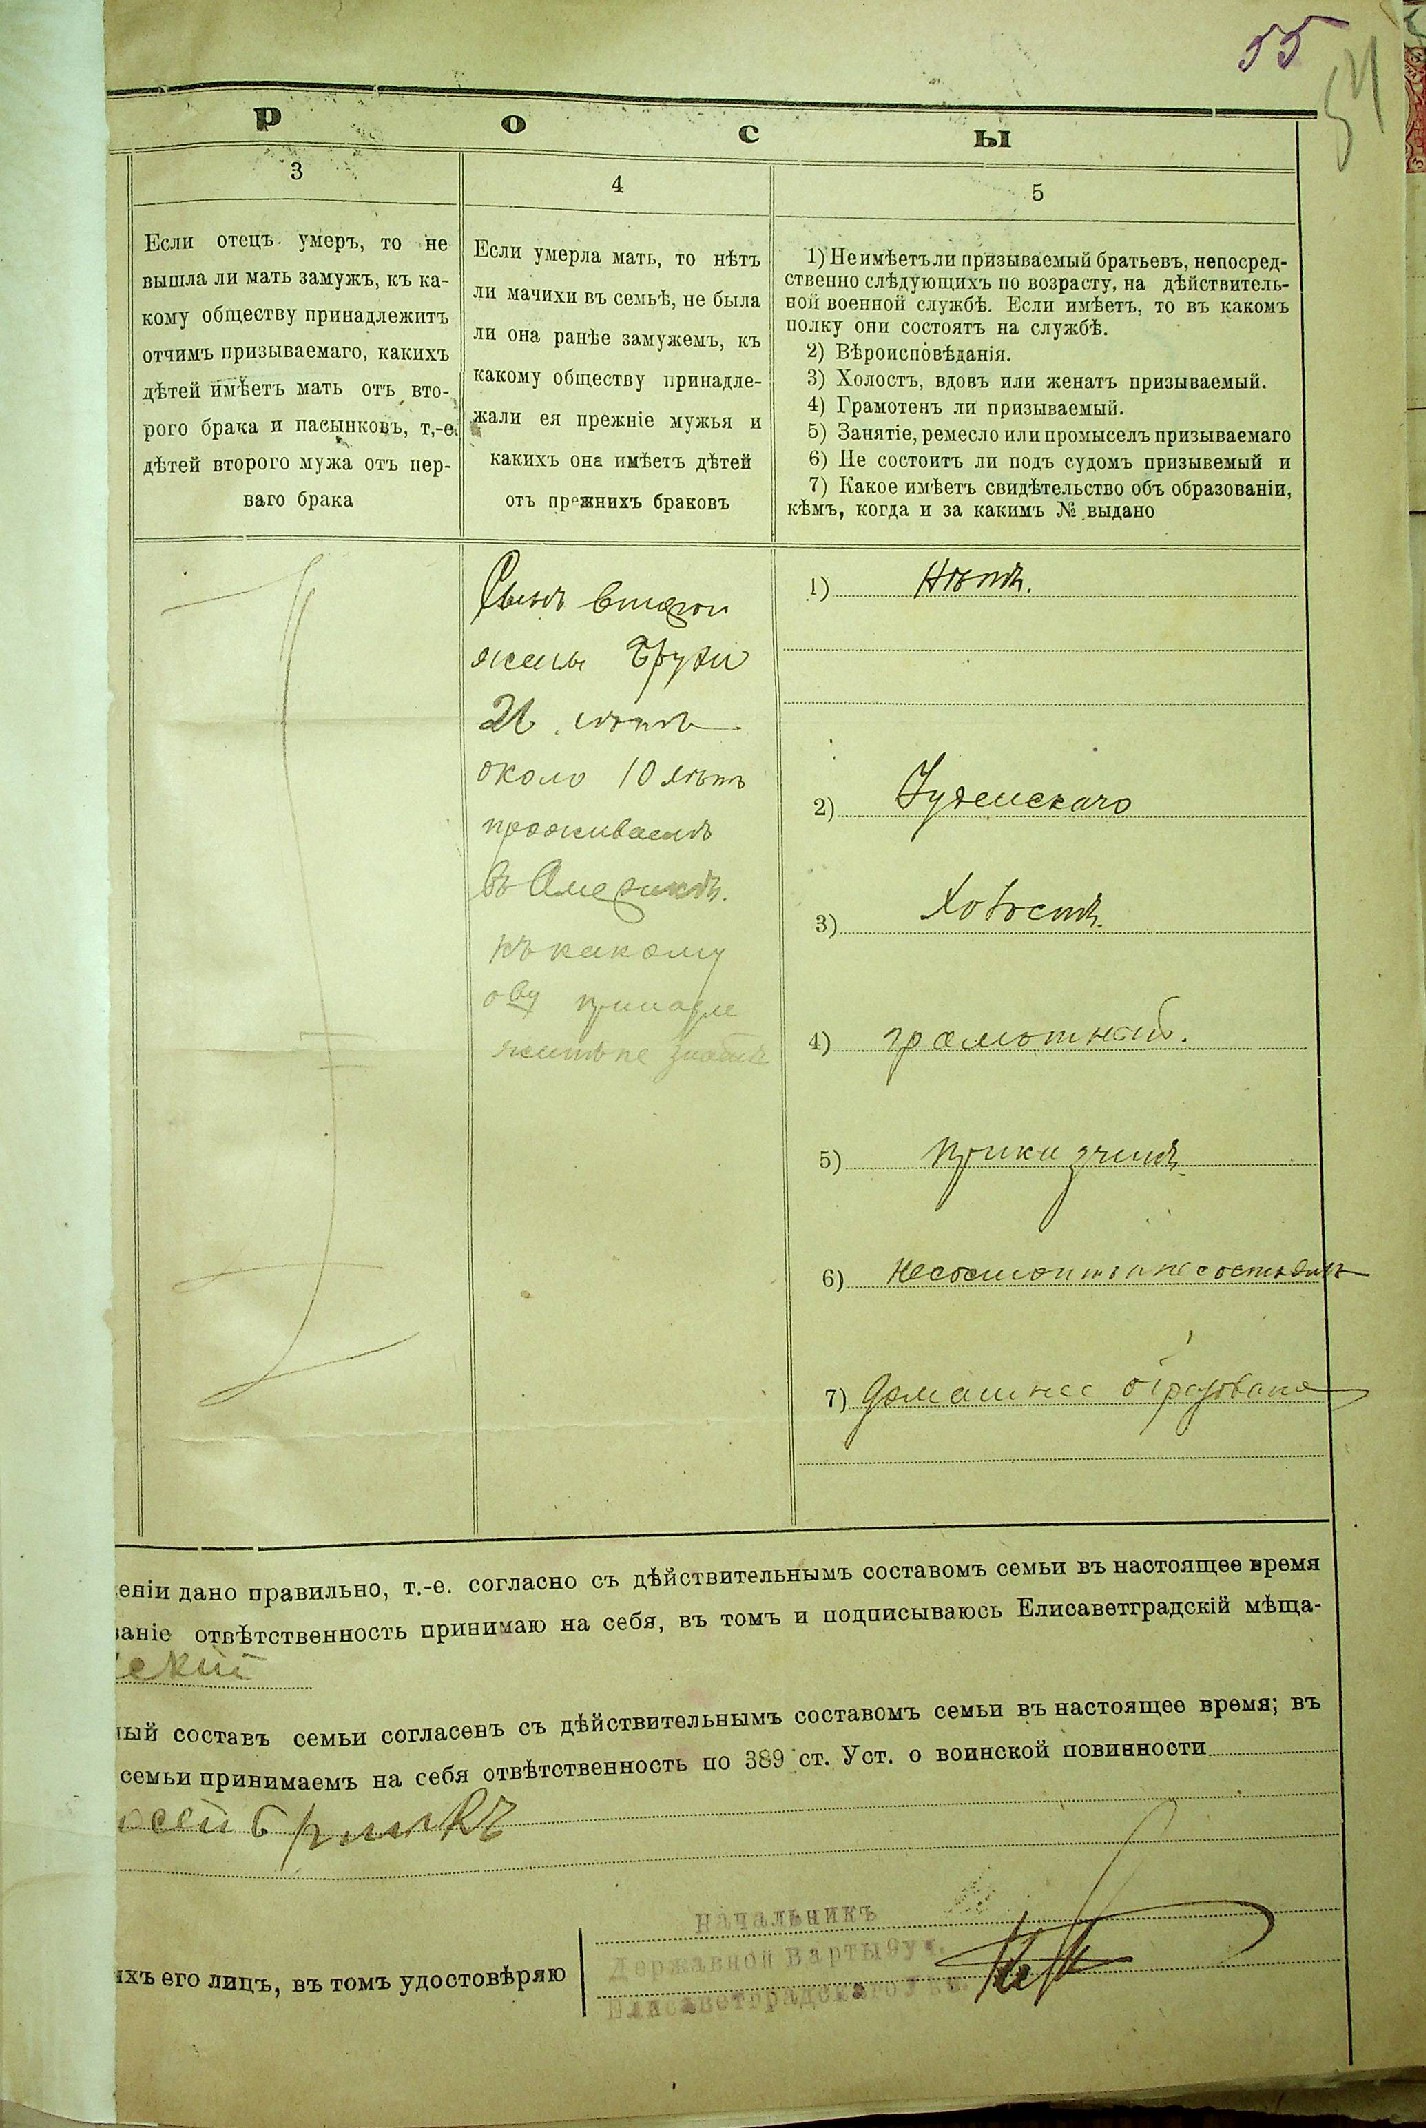 55
54
Р О С Ы
3
Если отецъ умеръ, то не
вышла ли мать замужъ, къ ка-
кому обществу принадлежитъ
отчимъ призываемаго, какихъ
дѣтей имѣетъ мать отъ вто-
рого брака и пасынковъ, т.-е.
дѣтей второго мужа отъ пер-
ваго брака
4
Если умерла мать, то нѣтъ
ли мачихи въ семьѣ, не была
ли она ранѣе замужемъ, къ
какому обществу принадле-
жали ея прежніе мужья и
какихъ она имѣетъ дѣтей
отъ прежнихъ браковъ
5
1) Не имѣетъ ли призываемый братьевъ, непосред-
ственно слѣдующихъ по возрасту, на дѣйствитель-
ной военной службѣ. Если имѣетъ, то въ какомъ
полку они состоятъ на службѣ.
2) Вѣроисповѣданія.
3) Холостъ, вдовъ или женатъ призываемый.
4) Грамотенъ ли призываемый.
5) Занятіе, ремесло или промыселъ призываемаго
6) Не состоитъ ли подъ судомъ призывемый и
7) Какое имѣетъ свидѣтельство объ образованіи,
кѣмъ, когда и за какимъ № выдано
Сынъ второй
жены
около 10 лѣтъ
проживаетъ
въ Америкѣ.
къ какому
ову принадле
житъ не знаетъ
1) Нѣтъ.
2) Іудейскаго
3) Холостъ.
4) грамотный.
5) Приказчикъ.
6) Не состоитъ и не состоялъ
7) Домашнее образованіе
еніи дано правильно, т.-е. согласно съ дѣйствительнымъ составомъ семьи въ настоящее время
ваніе отвѣтственность принимаю на себя, въ томъ и подписываюсь Елисаветградскій мѣща-
скій
ный составъ семьи согласенъ съ дѣйствительнымъ составомъ семьи въ настоящее время; въ
семьи принимаемъ на себя отвѣтственность по 389 ст. Уст. о воинской повинности
ихъ его лицъ, въ томъ удостовѣряю
Начальникъ
Державной Варты 9 уч.
Елисаветградскаго